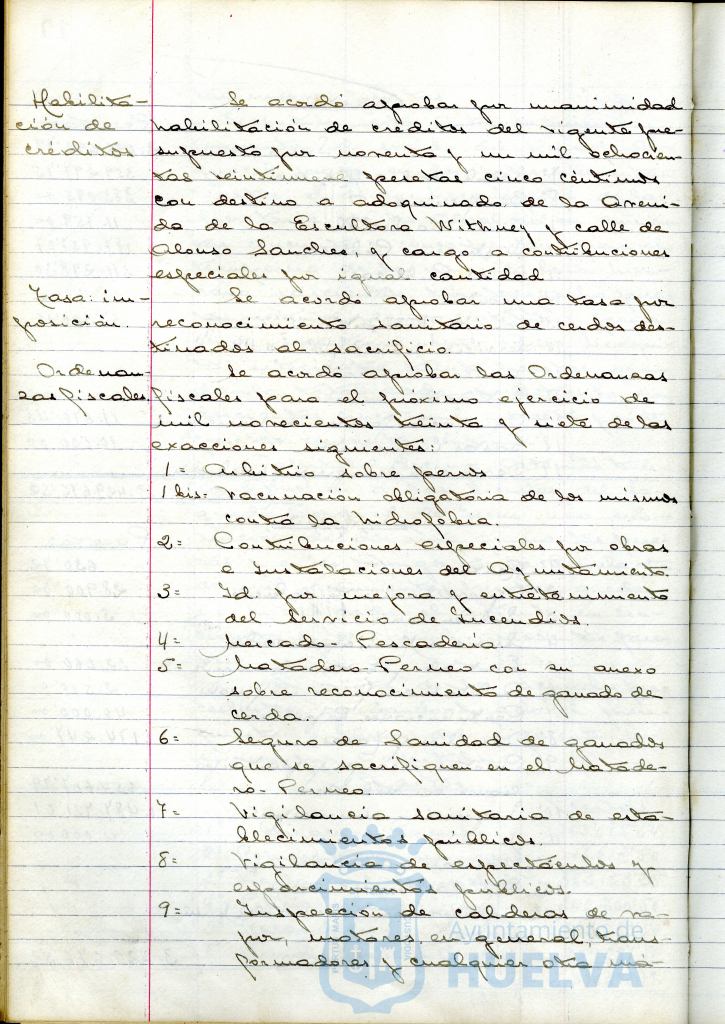 Habilita-
ción de
créditos
Se acordó aprobar por unanimidad
habilitación de créditos del vigente pre-
supuesto por noventa y un mil ochocien-
tas veintinueve pesetas cinco céntimos
con destino a adoquinado de la Aveni-
da de la Escultora Withney y calle de
Alonso Sanchez, y cargo a contribuciones
especiales por igual cantidad
Tasa: im-
posición.
Se acordó aprobar una tasa por
reconocimiento sanitario de cerdos des-
tinados al sacrificio.
Ordenan-
zas fiscales
Se acordó aprobar las Ordenanzas
fiscales para el próximo ejercicio de
mil novecientos treinta y siete de las
exacciones siguientes:
1= Arbitrio sobre perros
1 bis= Vacunación obligatoria de los mismos
contra la hidrofobia.
2= Contribuciones especiales por obras
e Instalaciones del Ayuntamiento.
3= Id. por mejora y entretenimiento
del Servicio de Incendios.
4= Mercado-Pescadería.
5= Matadero-Perneo con su anexo
sobre reconocimiento de ganado de
cerda.
6= Seguro de Sanidad de ganados
que se sacrifiquen en el Matade-
ro-Perneo.
7= Vigilancia sanitaria de esta-
blecimientos públicos.
8= Vigilancia de espectáculos y
esparcimientos públicos.
9= Inspección de calderas de va-
por, motores en general, trans-
formadores y cualquier otra má-
Ayuntamiento de
HUELVA